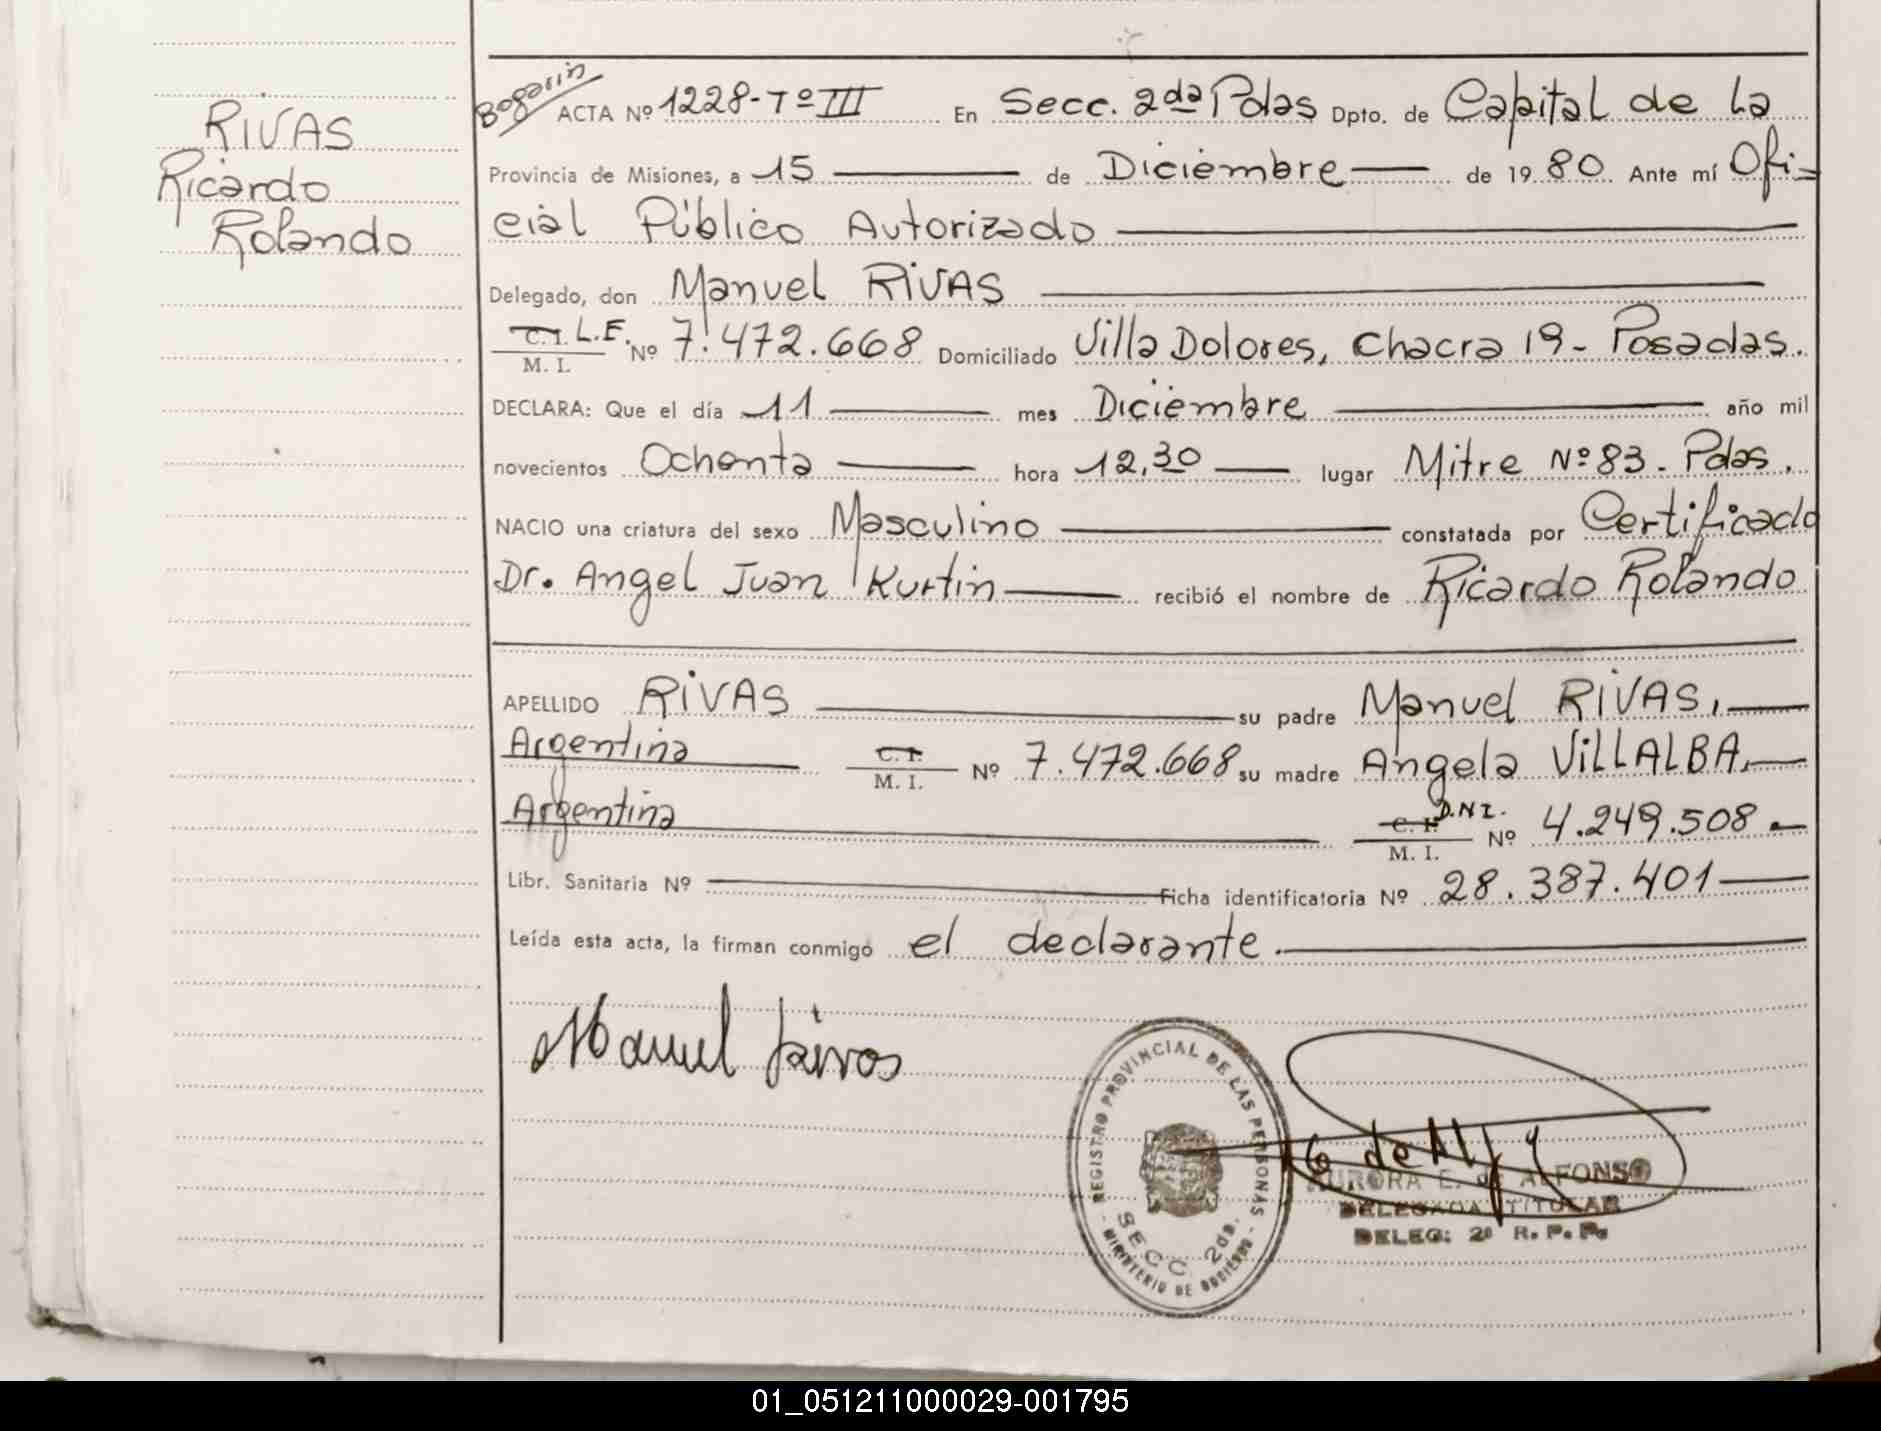 RIVAS
Ricardo
Rolando
Bogarin
ACTA Nº 1228-Tº III En Secc. 2da Pdas Dpto. de Capital de la
Provincia de Misiones, a 15 de Diciembre de 1980. Ante mí Ofi=
cial Público Autorizado
Delegado, don Manuel RIVAS
C. I. L.E.
M. I. Nº 7.472.668 Domiciliado Villa Dolores, Chacra 19- Posadas.
DECLARA: Que el día 11 mes Diciembre año mil
novecientos Ochenta hora 12,30 lugar Mitre Nº 83- Pdas.
NACIO una criatura del sexo Masculino constatada por Certificado
Dr. Angel Juan Kurtin recibió el nombre de Ricardo Rolando
APELLIDO RIVAS su padre Manuel RIVAS,
Argentina C. I. M. I. Nº 7.472.668 su madre Angela VILLALBA,
Argentina C. I. D.N.I. M. I. Nº 4.249.508.-
Libr. Sanitaria Nº Ficha identificatoria Nº 28.387.401
Leída esta acta, la firman conmigo el declarante.
Manuel Rivas
REGISTRO PROVINCIAL DE LAS PERSONAS
SECC. 2da.
MINISTERIO DE GOBIERNO
AURORA E. de ALFONSO
DELEGADA TITULAR
DELEG: 2ª R. P. P.
01_051211000029-001795